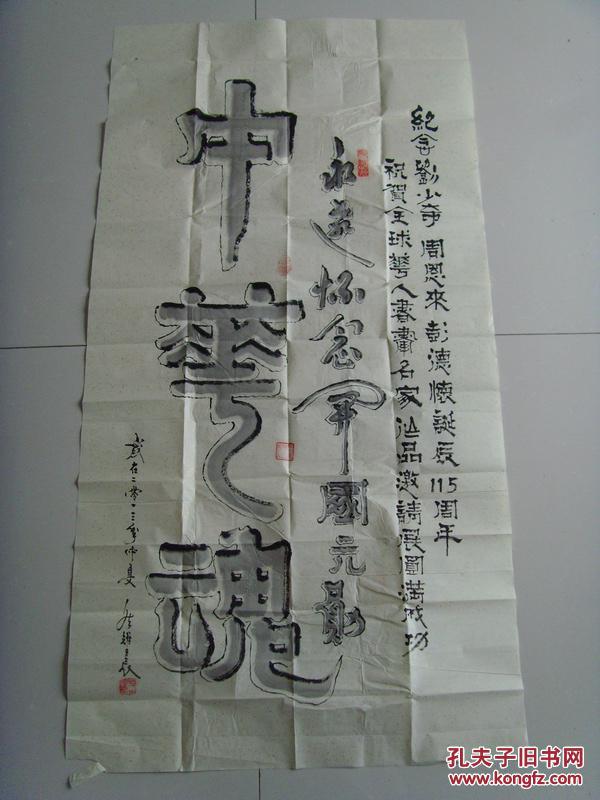 紀念劉少奇 周恩來 彭德懷誕辰115周年
祝賀全球華人書畫名家作品邀請展圓滿成功
永遠懷念開國元勛
中華魂
歲在二零一三年仲夏
孔夫子旧书网
www.kongfz.com